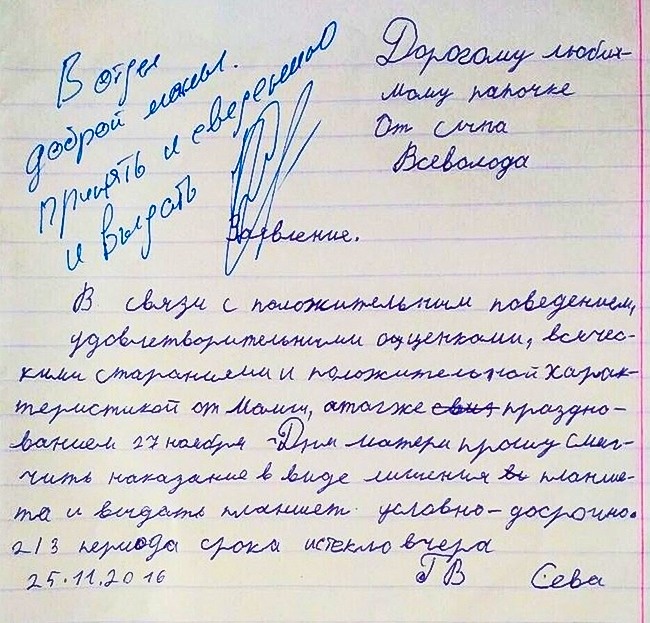 В отдел
доброй мамы.
Принять к сведению
и выдать
Дорогому люби-
мому папочке
От сына
Всеволода
Заявление.
В связи с положительным поведением,
удовлетворительными оценками, всячес-
кими стараниями и положительной харак-
теристикой от Мамы, атагже праздно-
ванием 27 ноября - Дня матери прошу смяг-
чить наказание в виде лишения планше-
та и выдать планшет условно-досрочно.
2/3 периода срока истекло вчера
25.11.2016 ГВ Сева